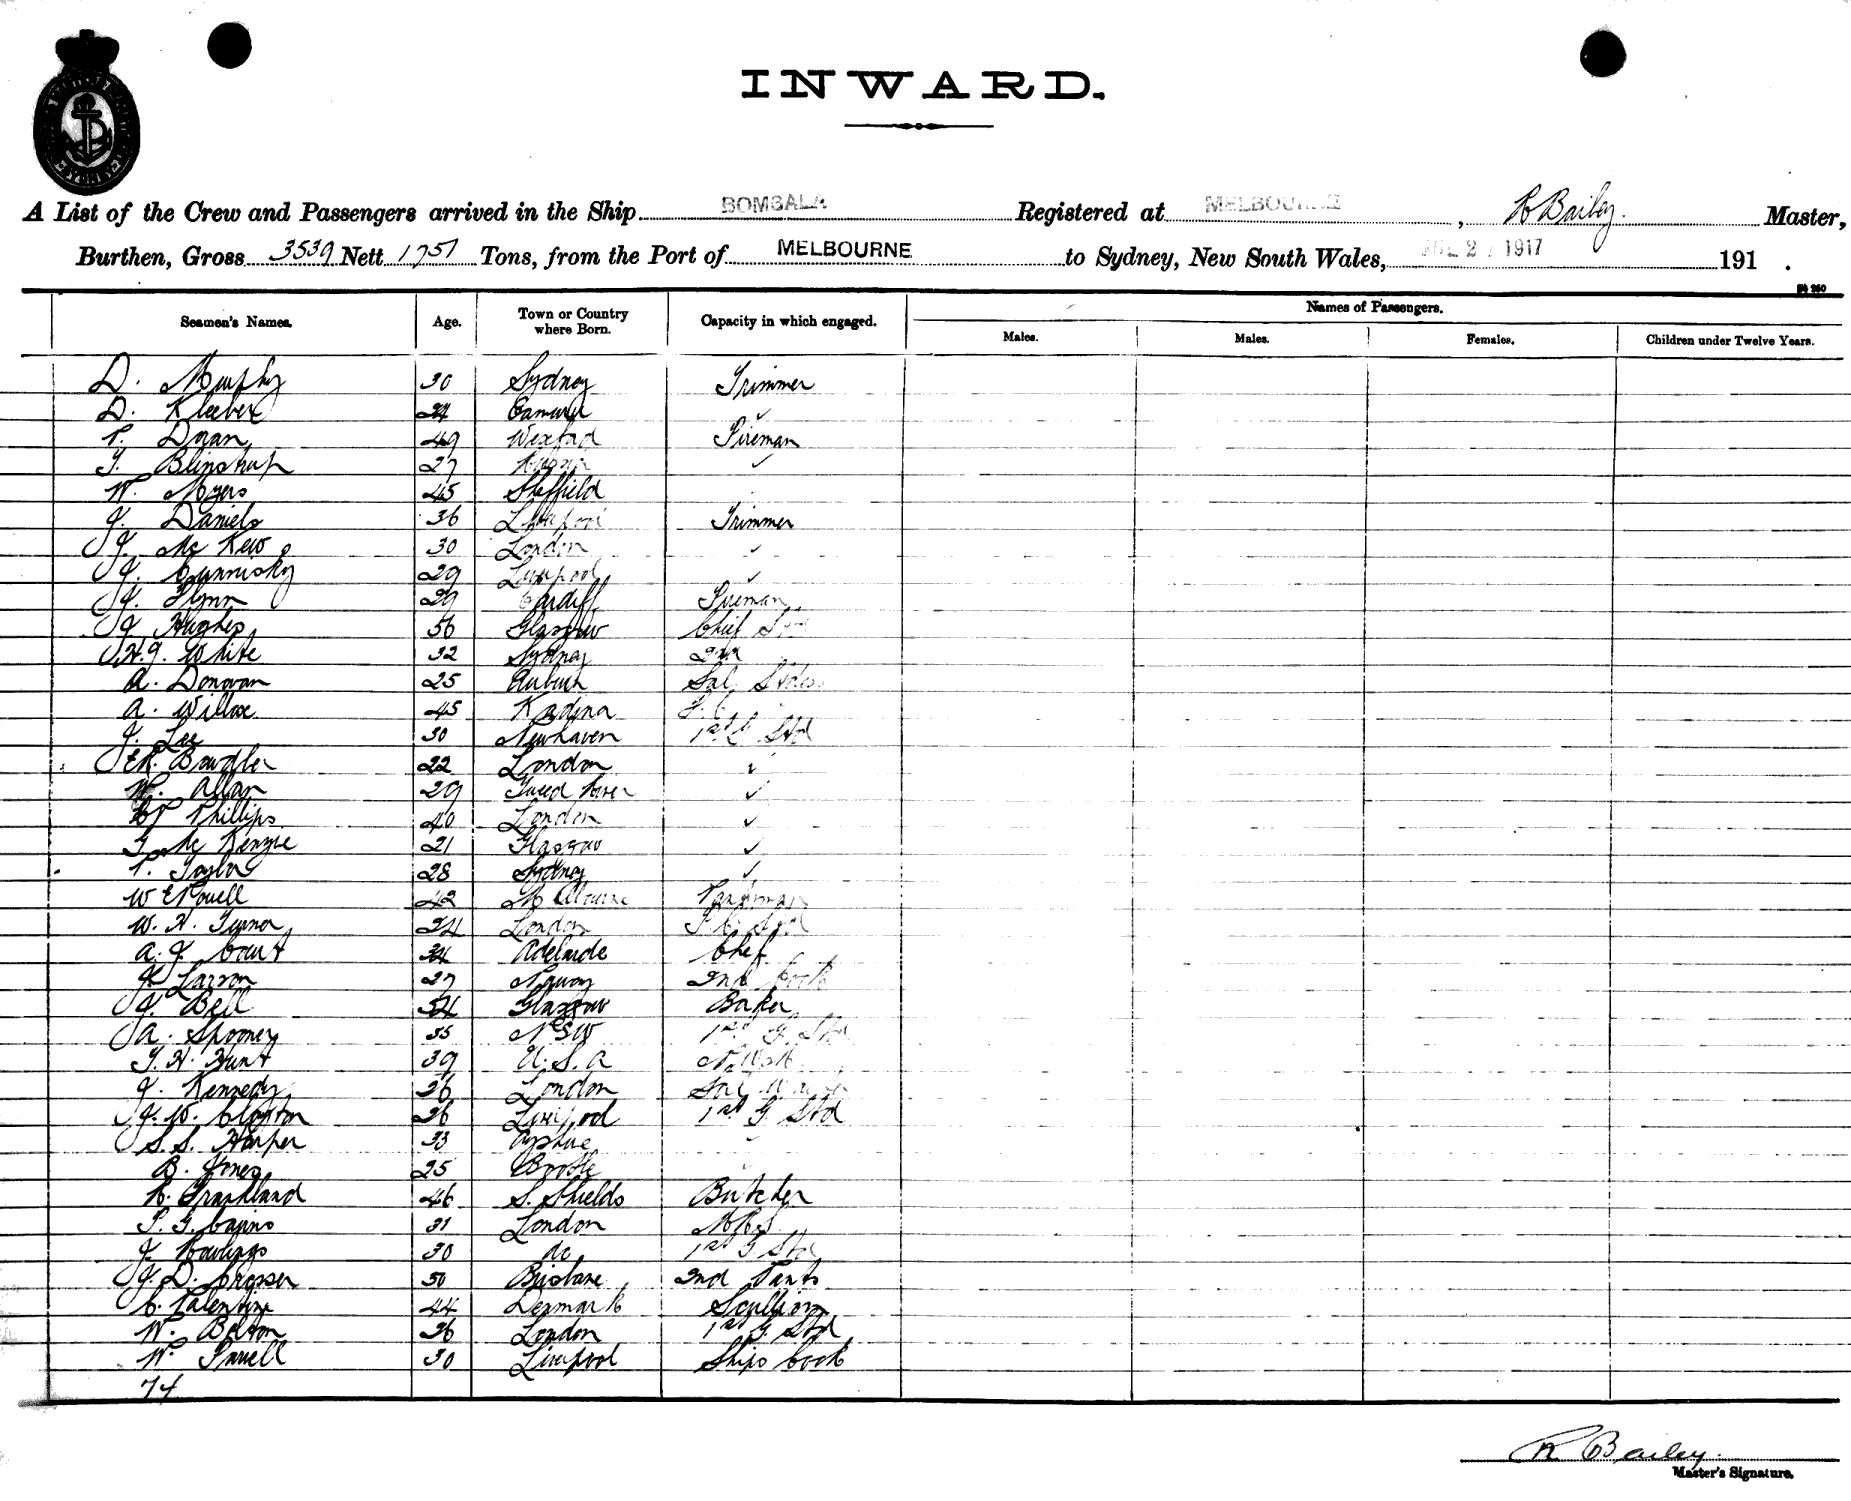 INWARD.
SYDNEY
A List of the Crew and Passengers arrived in the Ship BOMBALA Registered at MELBOURNE, R Bailey. Master,
Burthen, Gross 3539 Nett 1751 Tons, from the Port of MELBOURNE to Sydney, New South Wales, 1917 191 .
Names of Passengers.
Seamen's Names. Age. Town or Country where Born. Capacity in which engaged. Males. Males. Females. Children under Twelve Years.
D. Murphy 30 Sydney Trimmer
D. 24 ✓
P. Doran 49 Wexford Fireman
27 ✓
W. Myers 45 Sheffield
J. Daniels 36 Liverpool Trimmer
J. Mc Kew 30 London ✓
J. 29 Liverpool ✓
J. Flynn 29 Cardiff Fireman
J. Hughes 56 Glasgow Chief Std
H.J. White 32 Sydney 2nd
A. Donovan 25 Auburn Sal. Stdess
A. Willox 45 Kadina
J. Lee 30 Newhaven 1st G Std
Bowdler 22 London ✓
W. Allan 29 Tweed River ✓
Phillips 40 London ✓
Mc Kenzie 21 Glasgow ✓
P. Taylor 28 Sydney ✓
W E Powell 42 Melbourne Pantryman
W. H. Turner 24 London Std
A. J. Gaut 34 Adelaide Chef
J. Larson 27 Norway 2nd Cook
J. Bell 54 Glasgow Baker
A. Spooner 35 NSW 1st G. Std
T. H. Hunt 39 U.S.A
J. Kennedy 26 London Sal Waiter
J. W. Clayton 26 Liverpool 1st G. Std
S. S. Harper 33
B. Jones 25 Bootle
R. Frankland 46 S. Shields Butcher
31 London
J. Rawlings 30 do 1st G Std
J. D. 50 Brisbane 2nd Pants
C. 44 Denmark Scullion
W. Bolton 26 London 1st G. Std
W. 30 Liverpool Ships Cook
74
R Bailey.
Master's Signature.